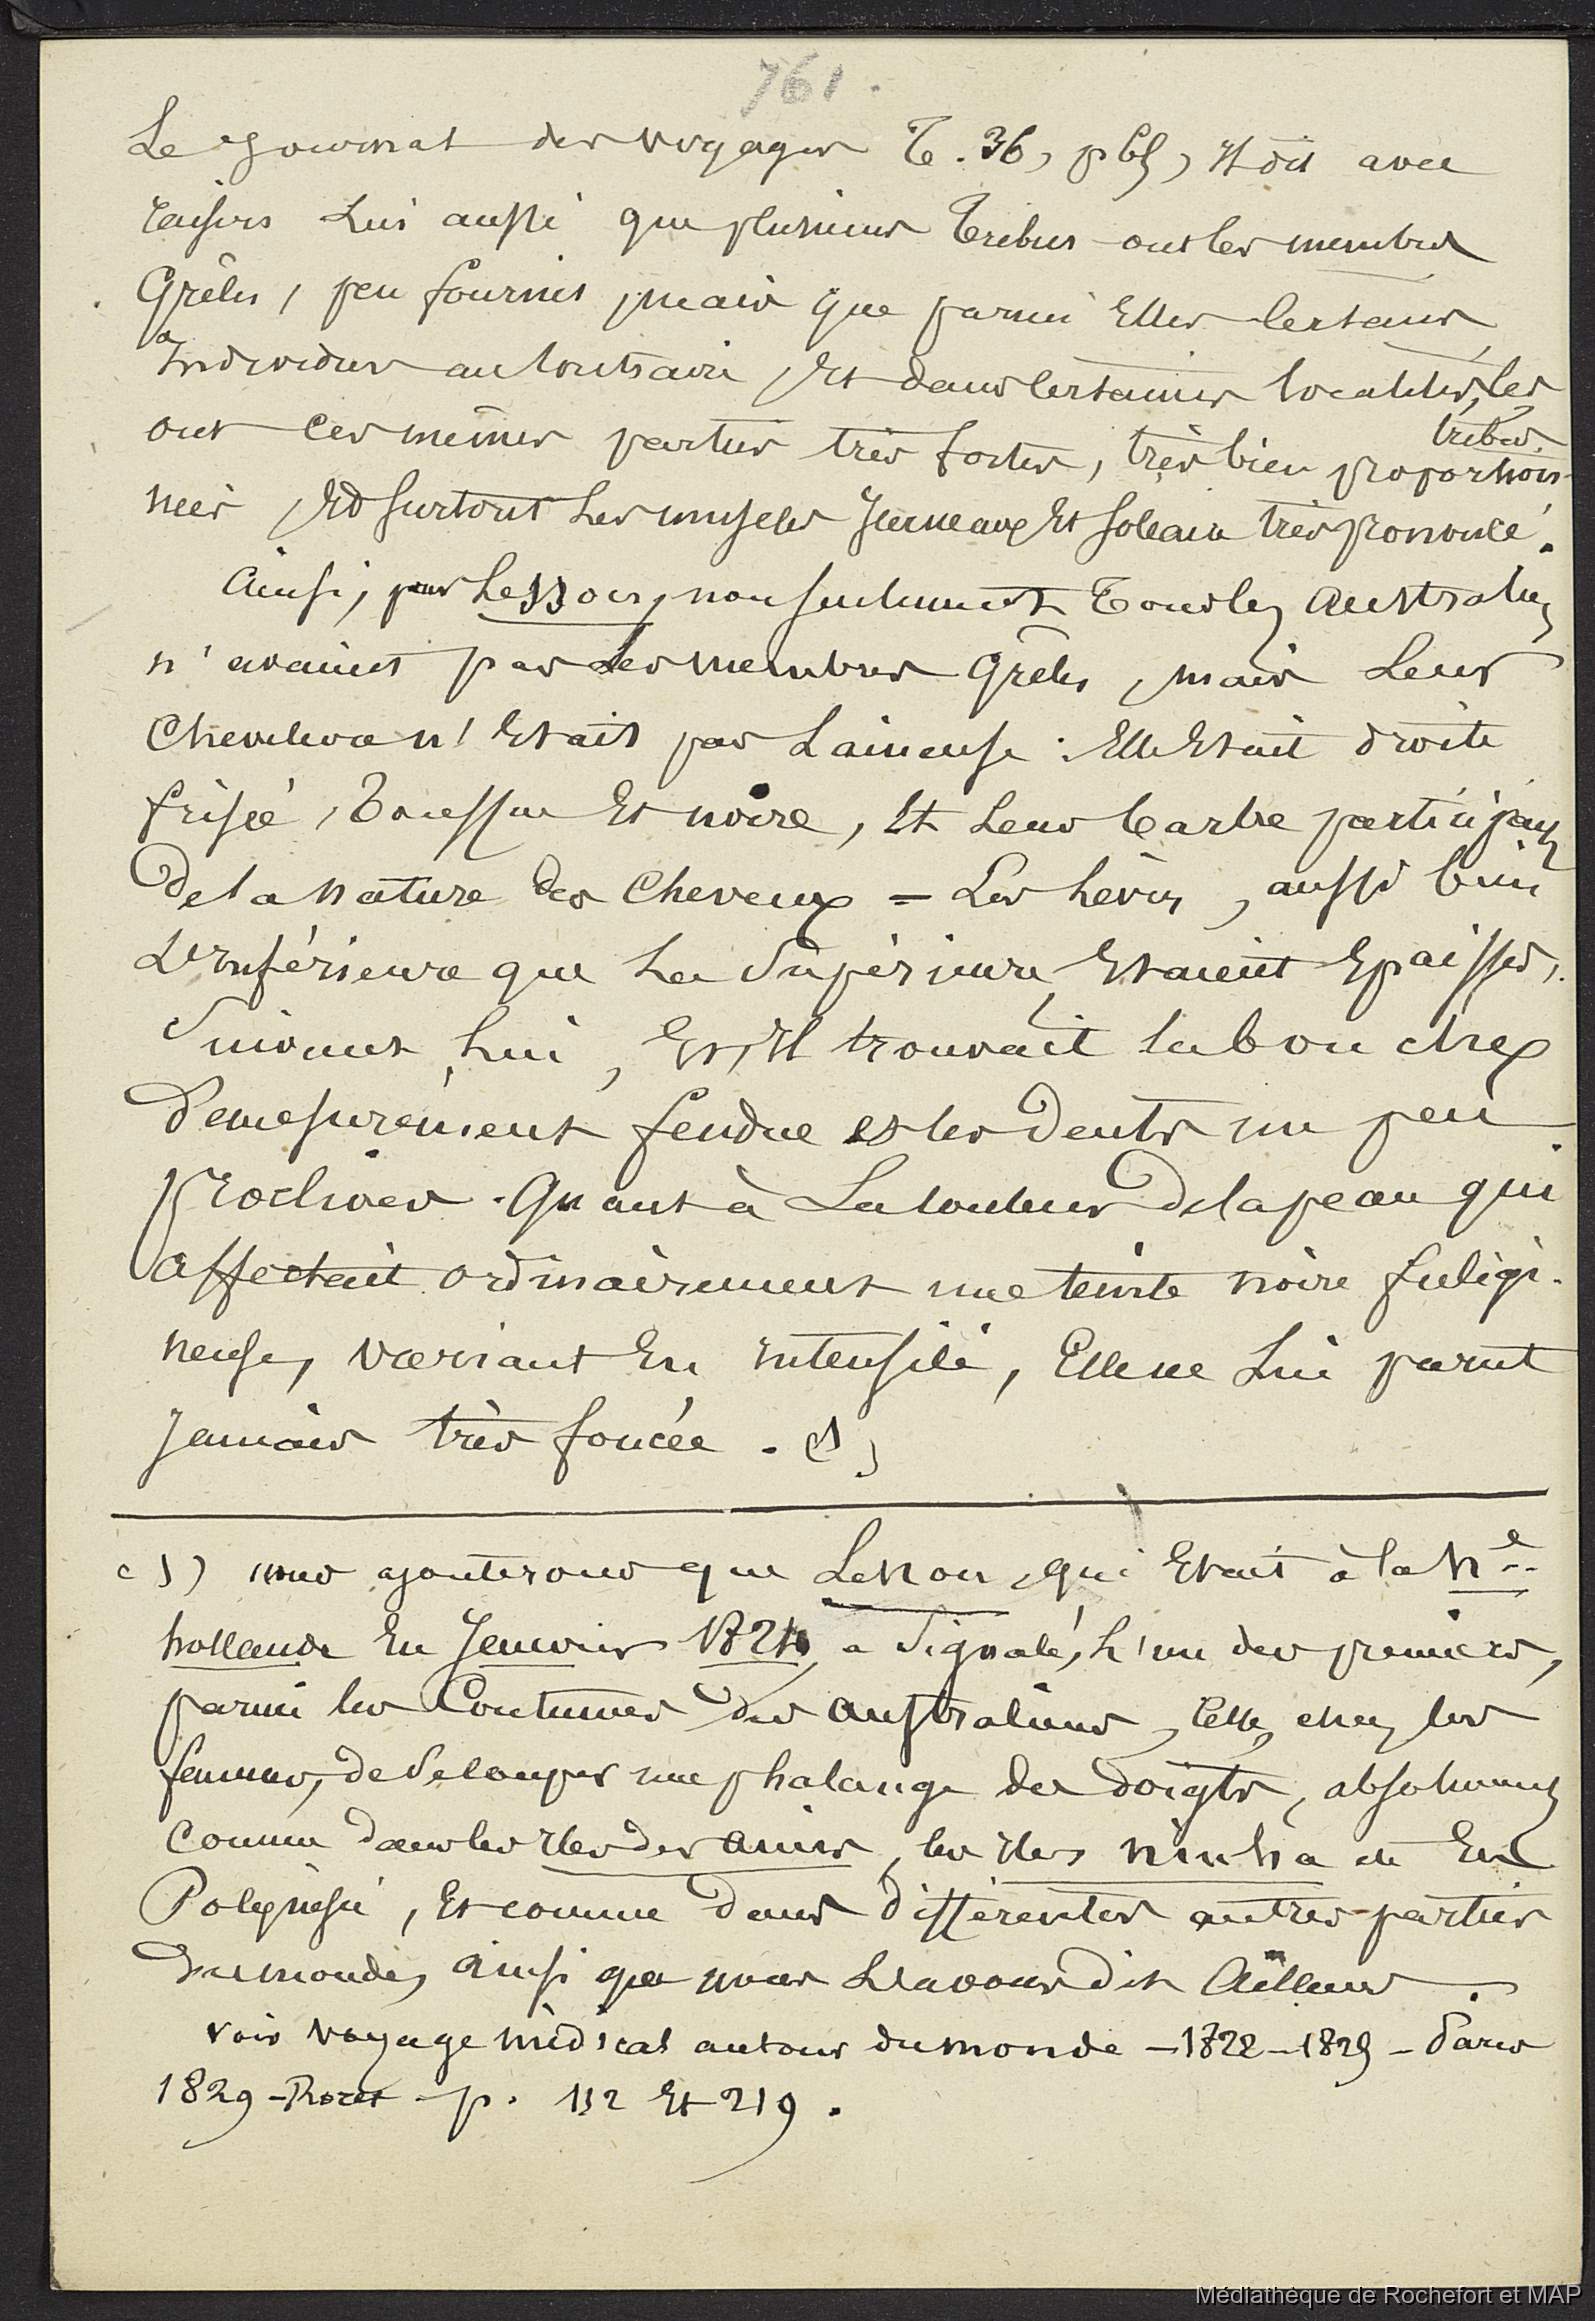 761.
Le Journal des voyages T. 36, p 69, Il dit avec
raison lui aussi que plusieurs Tribus ont les membres
Grêles, peu fournis, mais que parmi Elles Certains
Individus au Contraire, Et dans Certaines localités, les
tribus
ont Ces mêmes parties très fortes, très bien proportion-
neés Et surtout Les muscles Jumeaux Et Soléair très prononcé.
Ainsi, pour Lesson, non seulement Tous les Australiens
n'avaient pas des membres Grêles, mais Leur
Chevelure n'Etait pas Laineuse : Elle Etait droite
frisée, Touffue Et noire, Et Leur barbe participait
De la nature des Cheveux = Les Lèvres, aussi bien
L'Inférieure que La Supérieure, Etaient Epaisses,
Suivant Lui, Et, Il trouvait la bouche
Demesurément fendue et les Dents un peu
proclives. Quant à La Couleur De la peau qui
affectait ordinairement une teinte noire fuligi-
neuse, variant En intensité, Elle ne Lui parut
Jamais très foncée. (1)
(1) nous ajouterons que Lesson, qui Etait à la Nlle
hollande En Janvier 1824, a Signalé, L'un des premiers,
parmi les Coutumes Des Australiens, Celle, chez les
femmes, de Se couper une phalange des Doigts, absolument
Comme dans les Iles des Amis, les Iles en
Polynésie, Et comme Dans Différentes autres parties
Du monde, ainsi que nous L'avons Dit Ailleurs.
voir voyage médical autour du monde - 1822-1825 - Paris
1829 - Roret - p. 112 Et 219.
Médiathèque de Rochefort et MAP